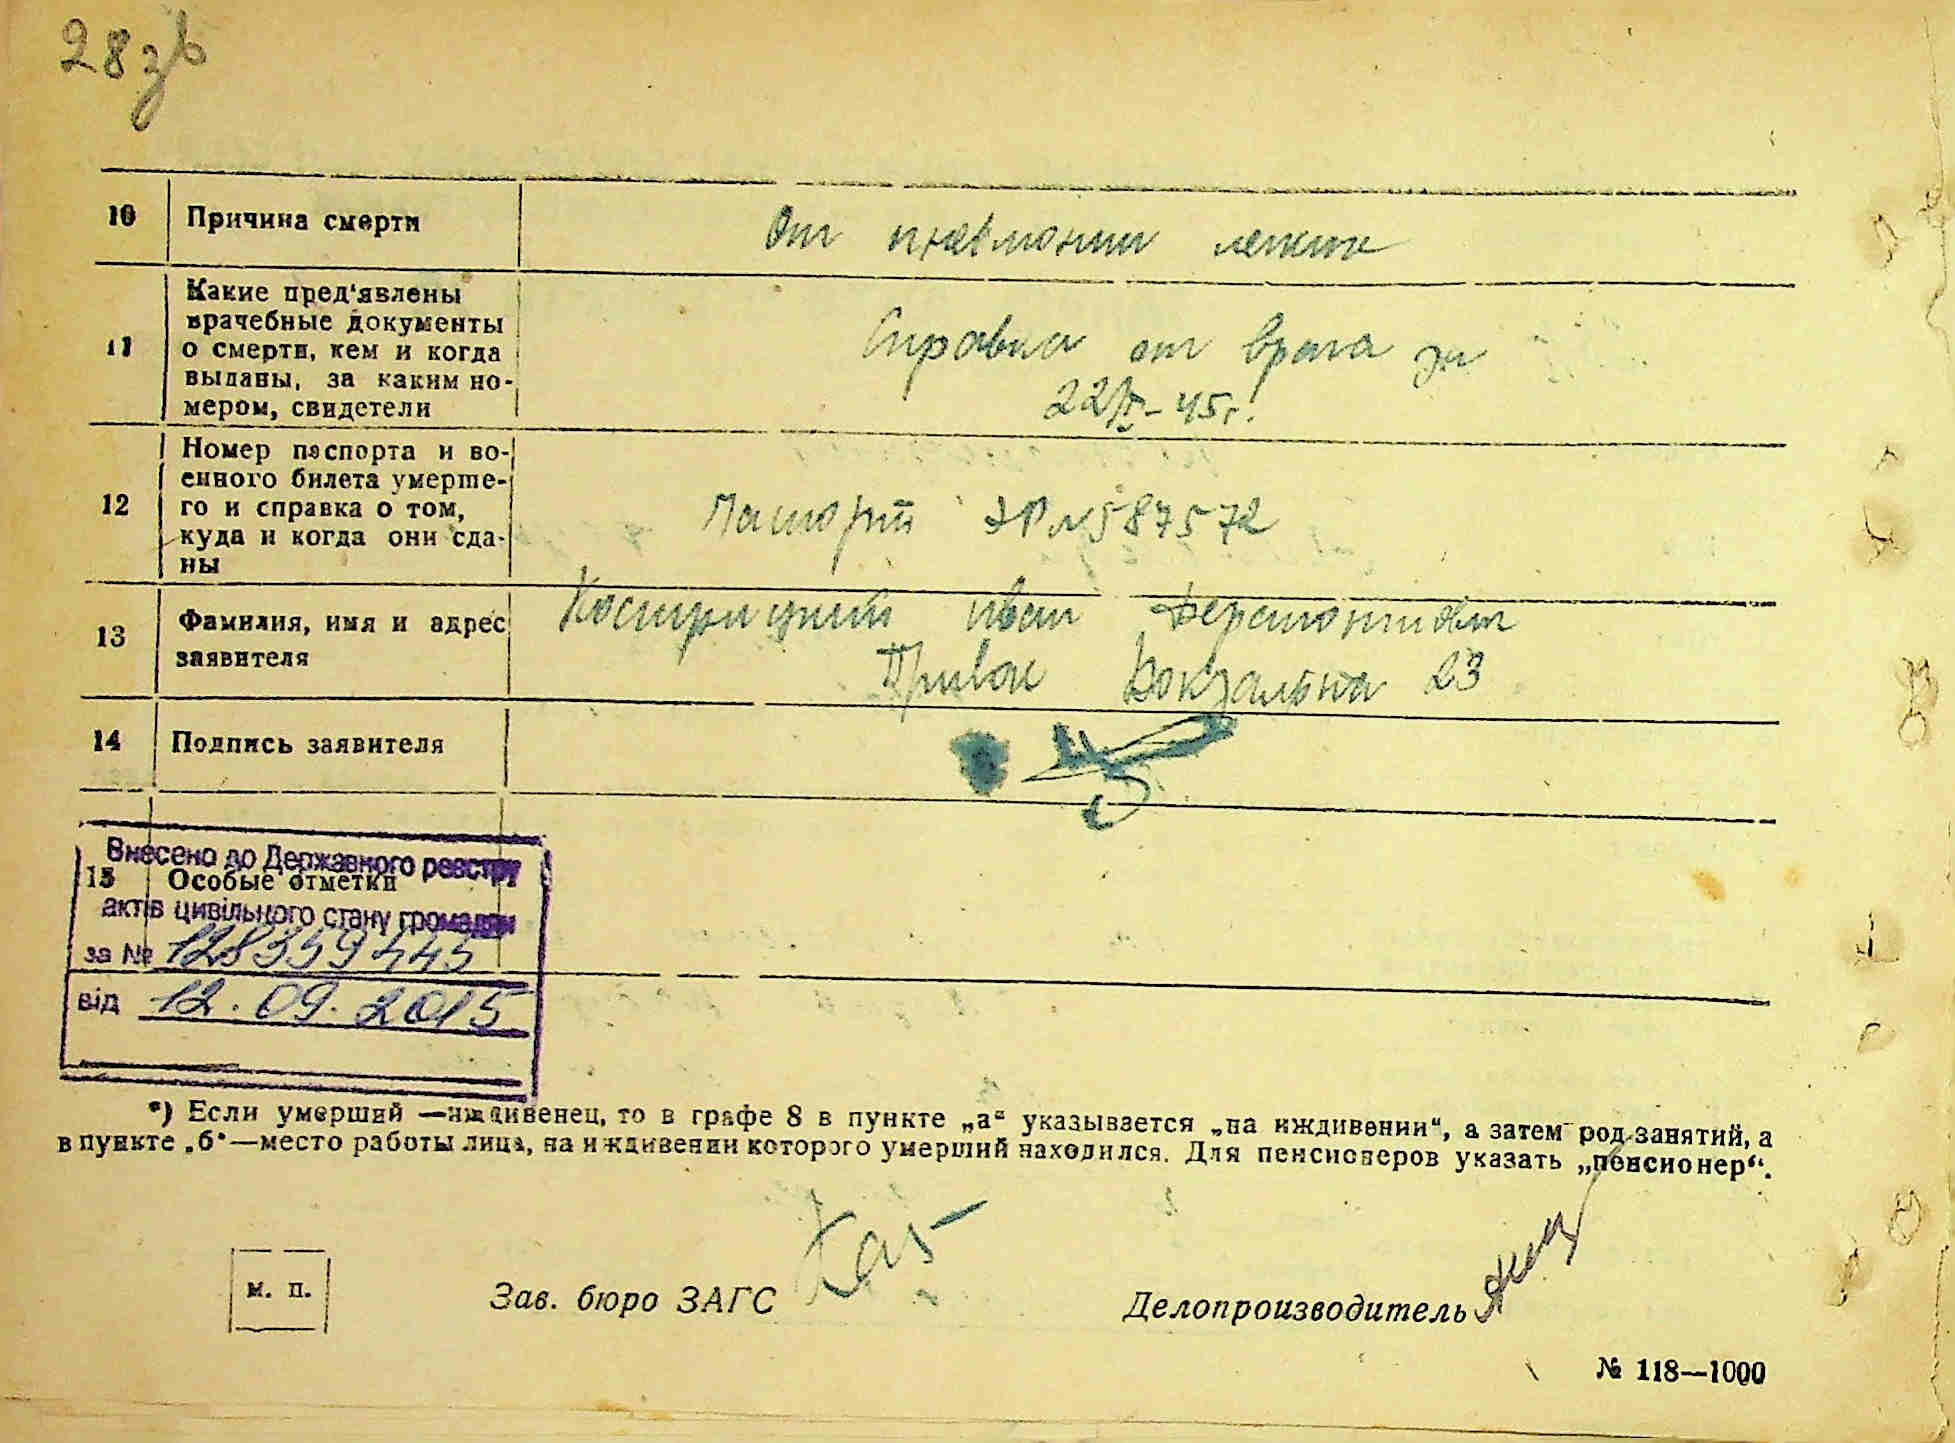 28 зв
10 Причина смерти От пневмонии легких
11 Какие пред'явлены
врачебные документы
о смерти, кем и когда
выданы, за каким но-
мером, свидетели
Справка от врача за
22/ -45г.
12 Номер паспорта и во-
енного билета умерше-
го и справка о том,
куда и когда они сда-
ны
Паспорт ЭР №587572
13 Фамилия, имя и адрес
заявителя
Иван
Вокзальна 23
14 Подпись заявителя
Внесено до Державного реєстру
15 Особые отметки
актів цивільного стану громадян
за № 128359445
від 12.09.2015
*) Если умерший —иждивенец, то в графе 8 в пункте „а“ указывается „на иждивении“, а затем род занятий, а
в пункте „б“—место работы лица, на иждивении которого умерший находился. Для пенсионеров указать „пенсионер“.
м. п.
Зав. бюро ЗАГС
Делопроизводитель
№ 118—1000